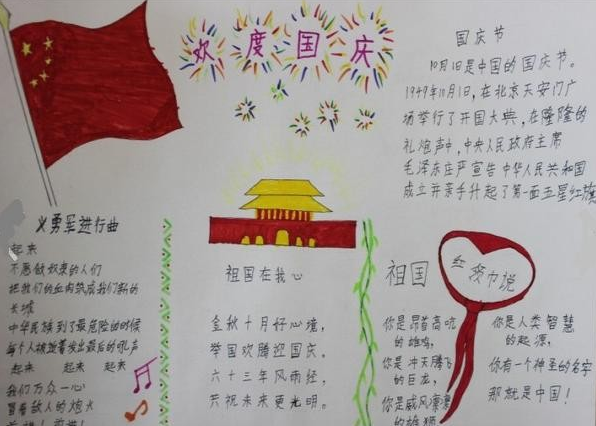 欢度国庆
国庆节
10月1日是中国的国庆节。
1949年10月1日,在北京天安门广
场举行了开国大典,在隆隆的
礼炮声中,中央人民政府主席
毛泽东庄严宣告中华人民共和国
成立并亲手升起了第一面五星红旗
义勇军进行曲
起来
不愿做奴隶的人们
把我们的血肉筑成我们新的
长城
中华民族到了最危险的时候
每个人被迫着发出最后的吼声
起来 起来 起来
我们万众一心
冒着敌人的炮火
祖国在我心
金秋十月好心境,
举国欢腾迎国庆。
六十三年风雨经,
共祝未来更光明。
祖国
你是昂首高吭
的雄鸡,
你是冲天腾飞
的巨龙,
你是威风凛凛
的雄狮
红领巾说
你是人类智慧
的起源,
你有一个神圣的名字
那就是中国!